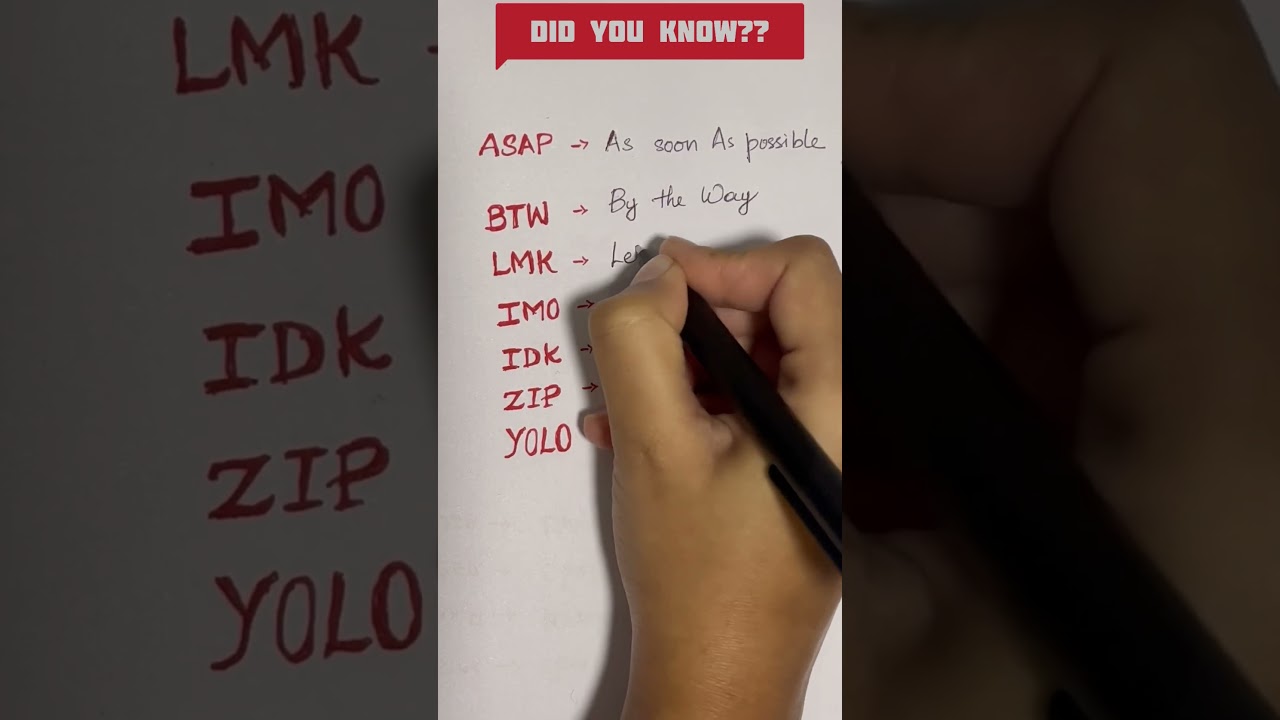 DID YOU KNOW??
ASAP → As soon As possible
BTW → By the Way
LMK → Let
IMO →
IDK →
ZIP →
YOLO
LMK
IMO
IDK
ZIP
YOLO